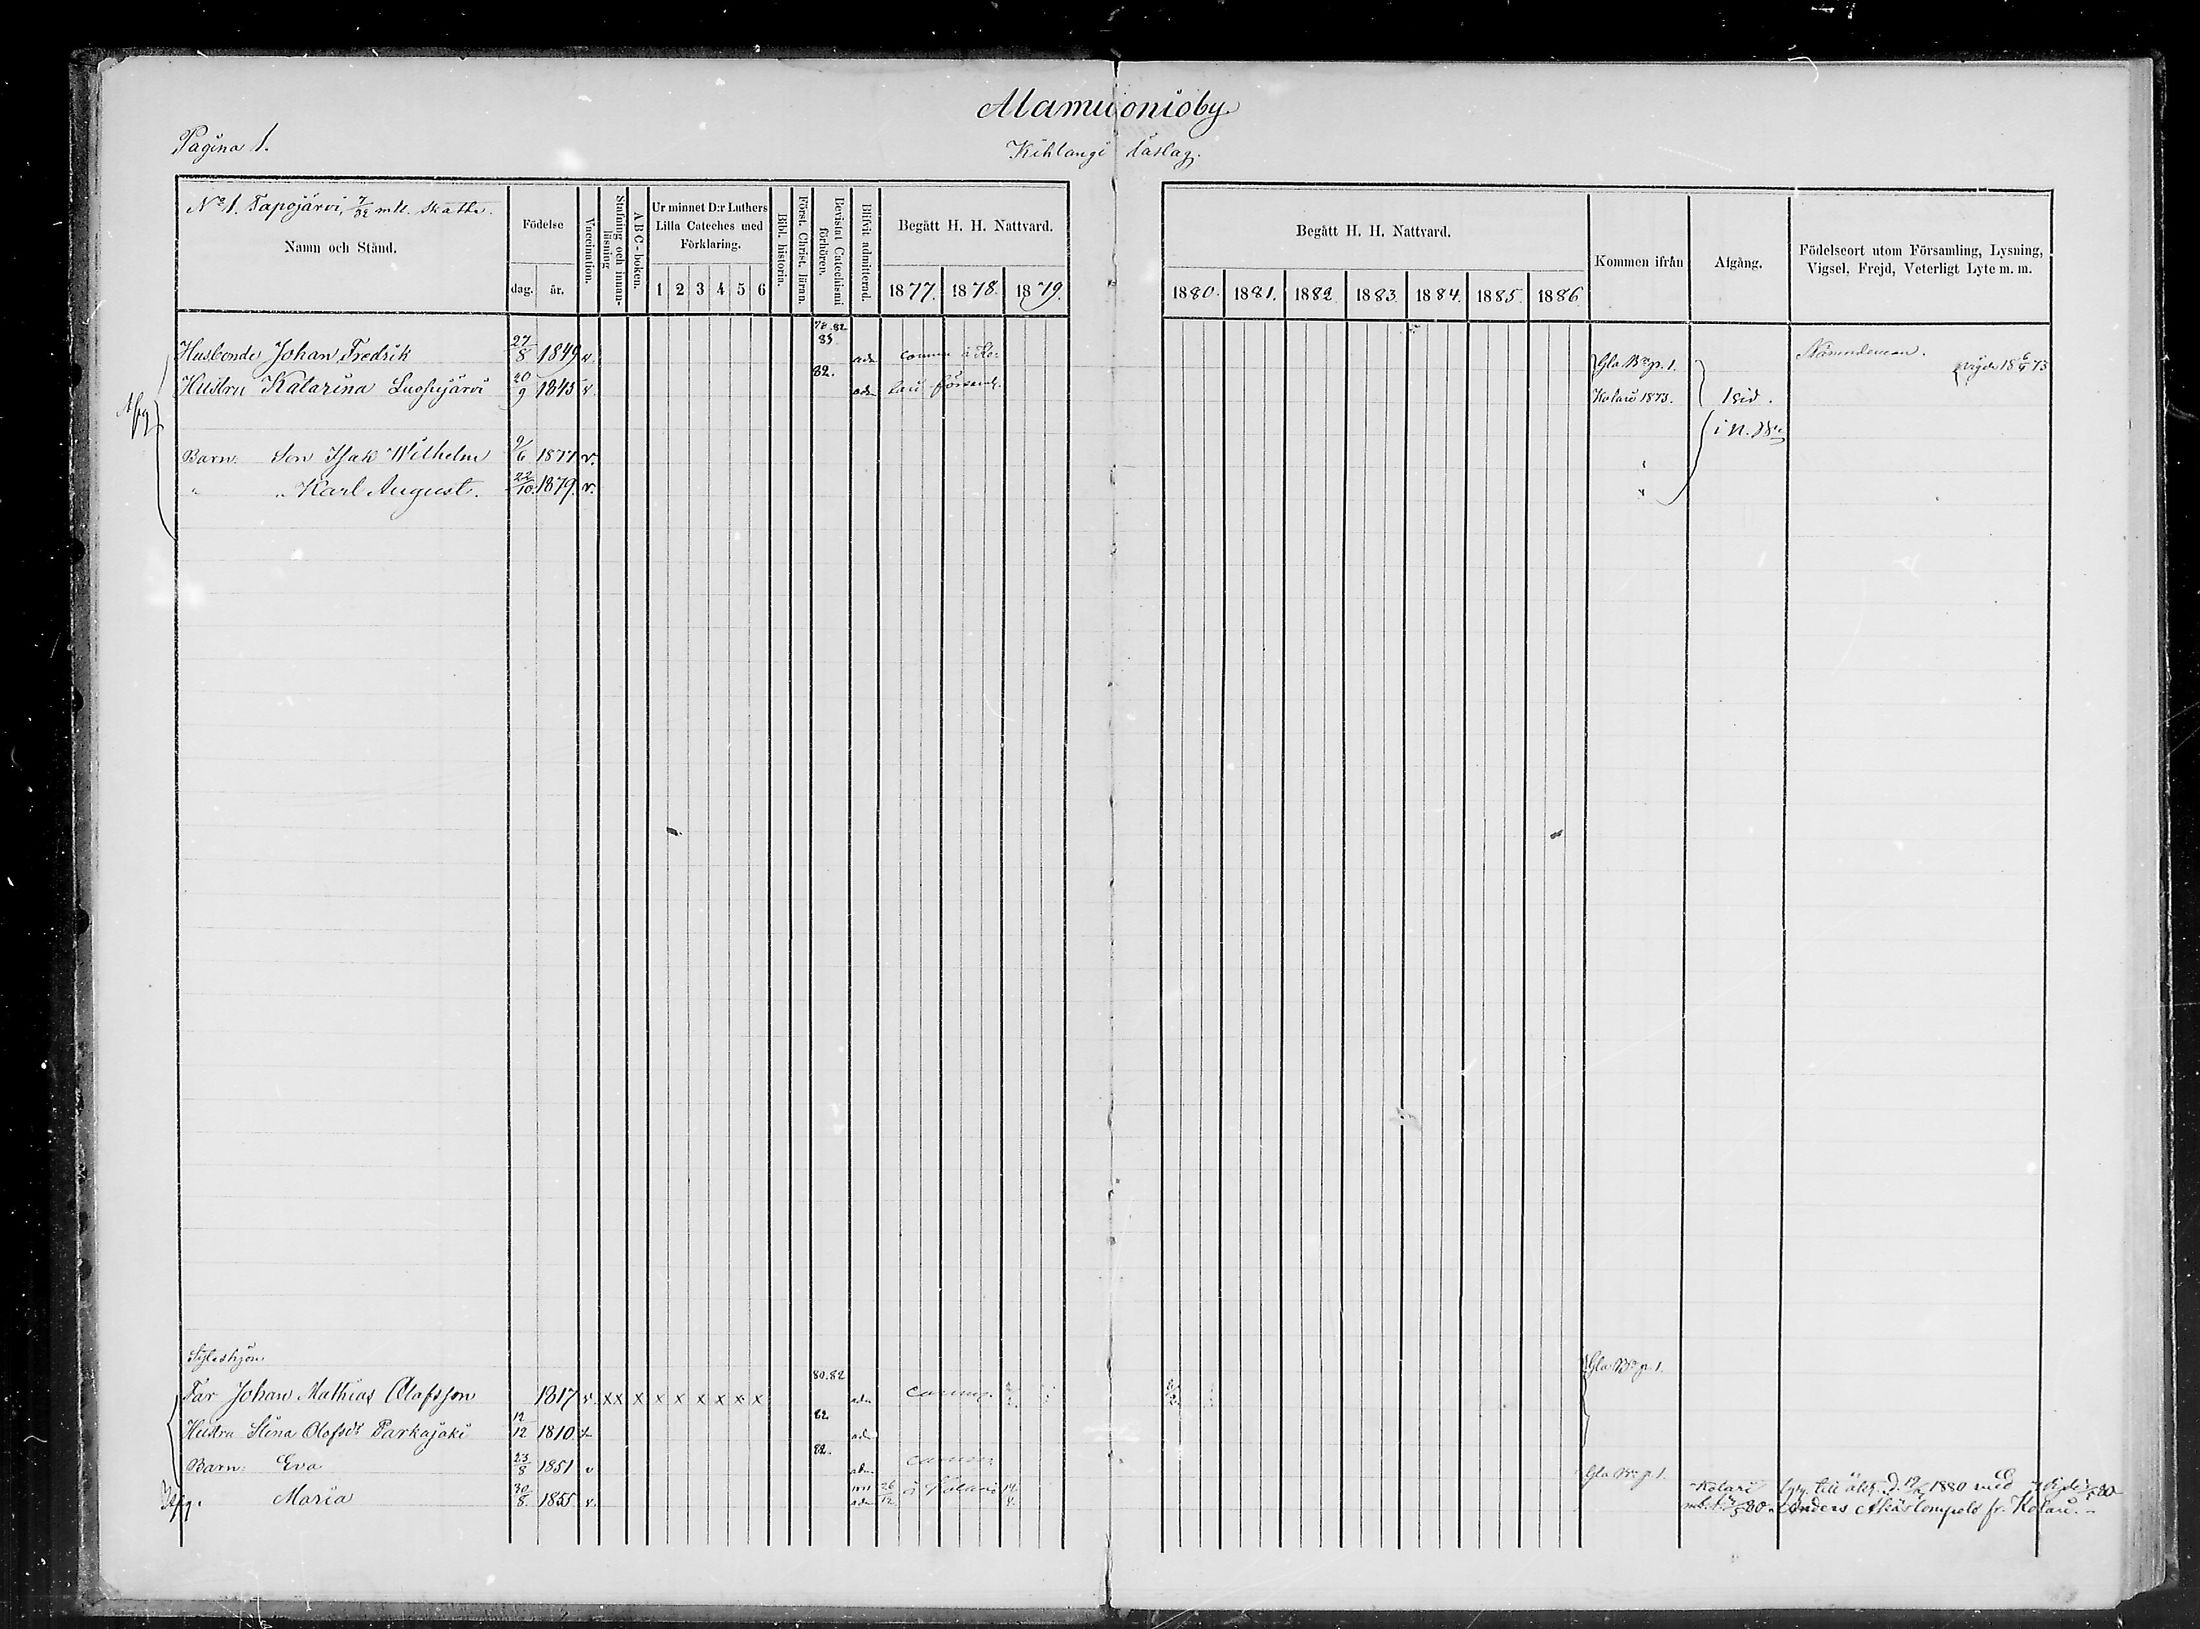 Alamuonioby
Pagina 1.
Kihlangi täslag.
No 1. Tapojärvi, 7/32 mtl. skatte.
Namn och Stånd.
Födelse
dag. år.
Vaccination.
Stafning och innan-
läsning
A B C - boken.
Ur minnet D:r Luthers
Lilla Cateches med
Förklaring.
1 2 3 4 5 6
Bibl. historia.
Först. Christ. läran.
Bevistat Catechismi
förhören.
Blifvit admitterad.
Begått H. H. Nattvard.
1877. 1878. 1879.
Begått H. H. Nattvard.
1880. 1881. 1882 1883 1884. 1885. 1886
Kommen ifrån
Afgång.
Födelseort utom Församling, Lysning,
Vigsel, Frejd, Veterligt Lyte m. m.
78.82
83
Husbonde Johan Fredrik 27/8 1849 v. adm comm. i Ko- Gla Bn p. 1. Nämndeman. vigde 18 6/4 73
82.
Hustru Katarina 20/9 1845 v. adm lari församl. Kolari 1873. 1 sid.
Afg i N. Bn
Barn. Son Isak Wilhelm 9/6 1877 v.
" " Karl August. 22/10 1879. v. "
Syteshjon
80.82 Gla Bn p. 1.
Far Johan Mathias Olofsson 1817 v. x x x x x x x x x adm
82
Hustru Stina Olofsdr Parkajoki 12/12 1810 adm
82.
Barn: Eva 23/8 1851 v adm Gla Bn p. 1.
Afg. Maria 30/8 1855 v. adm 26/12 i Kolari Kolari lysg. till äkt. d. 1880 med
Anders Äkäslompolo fr. Kolari.